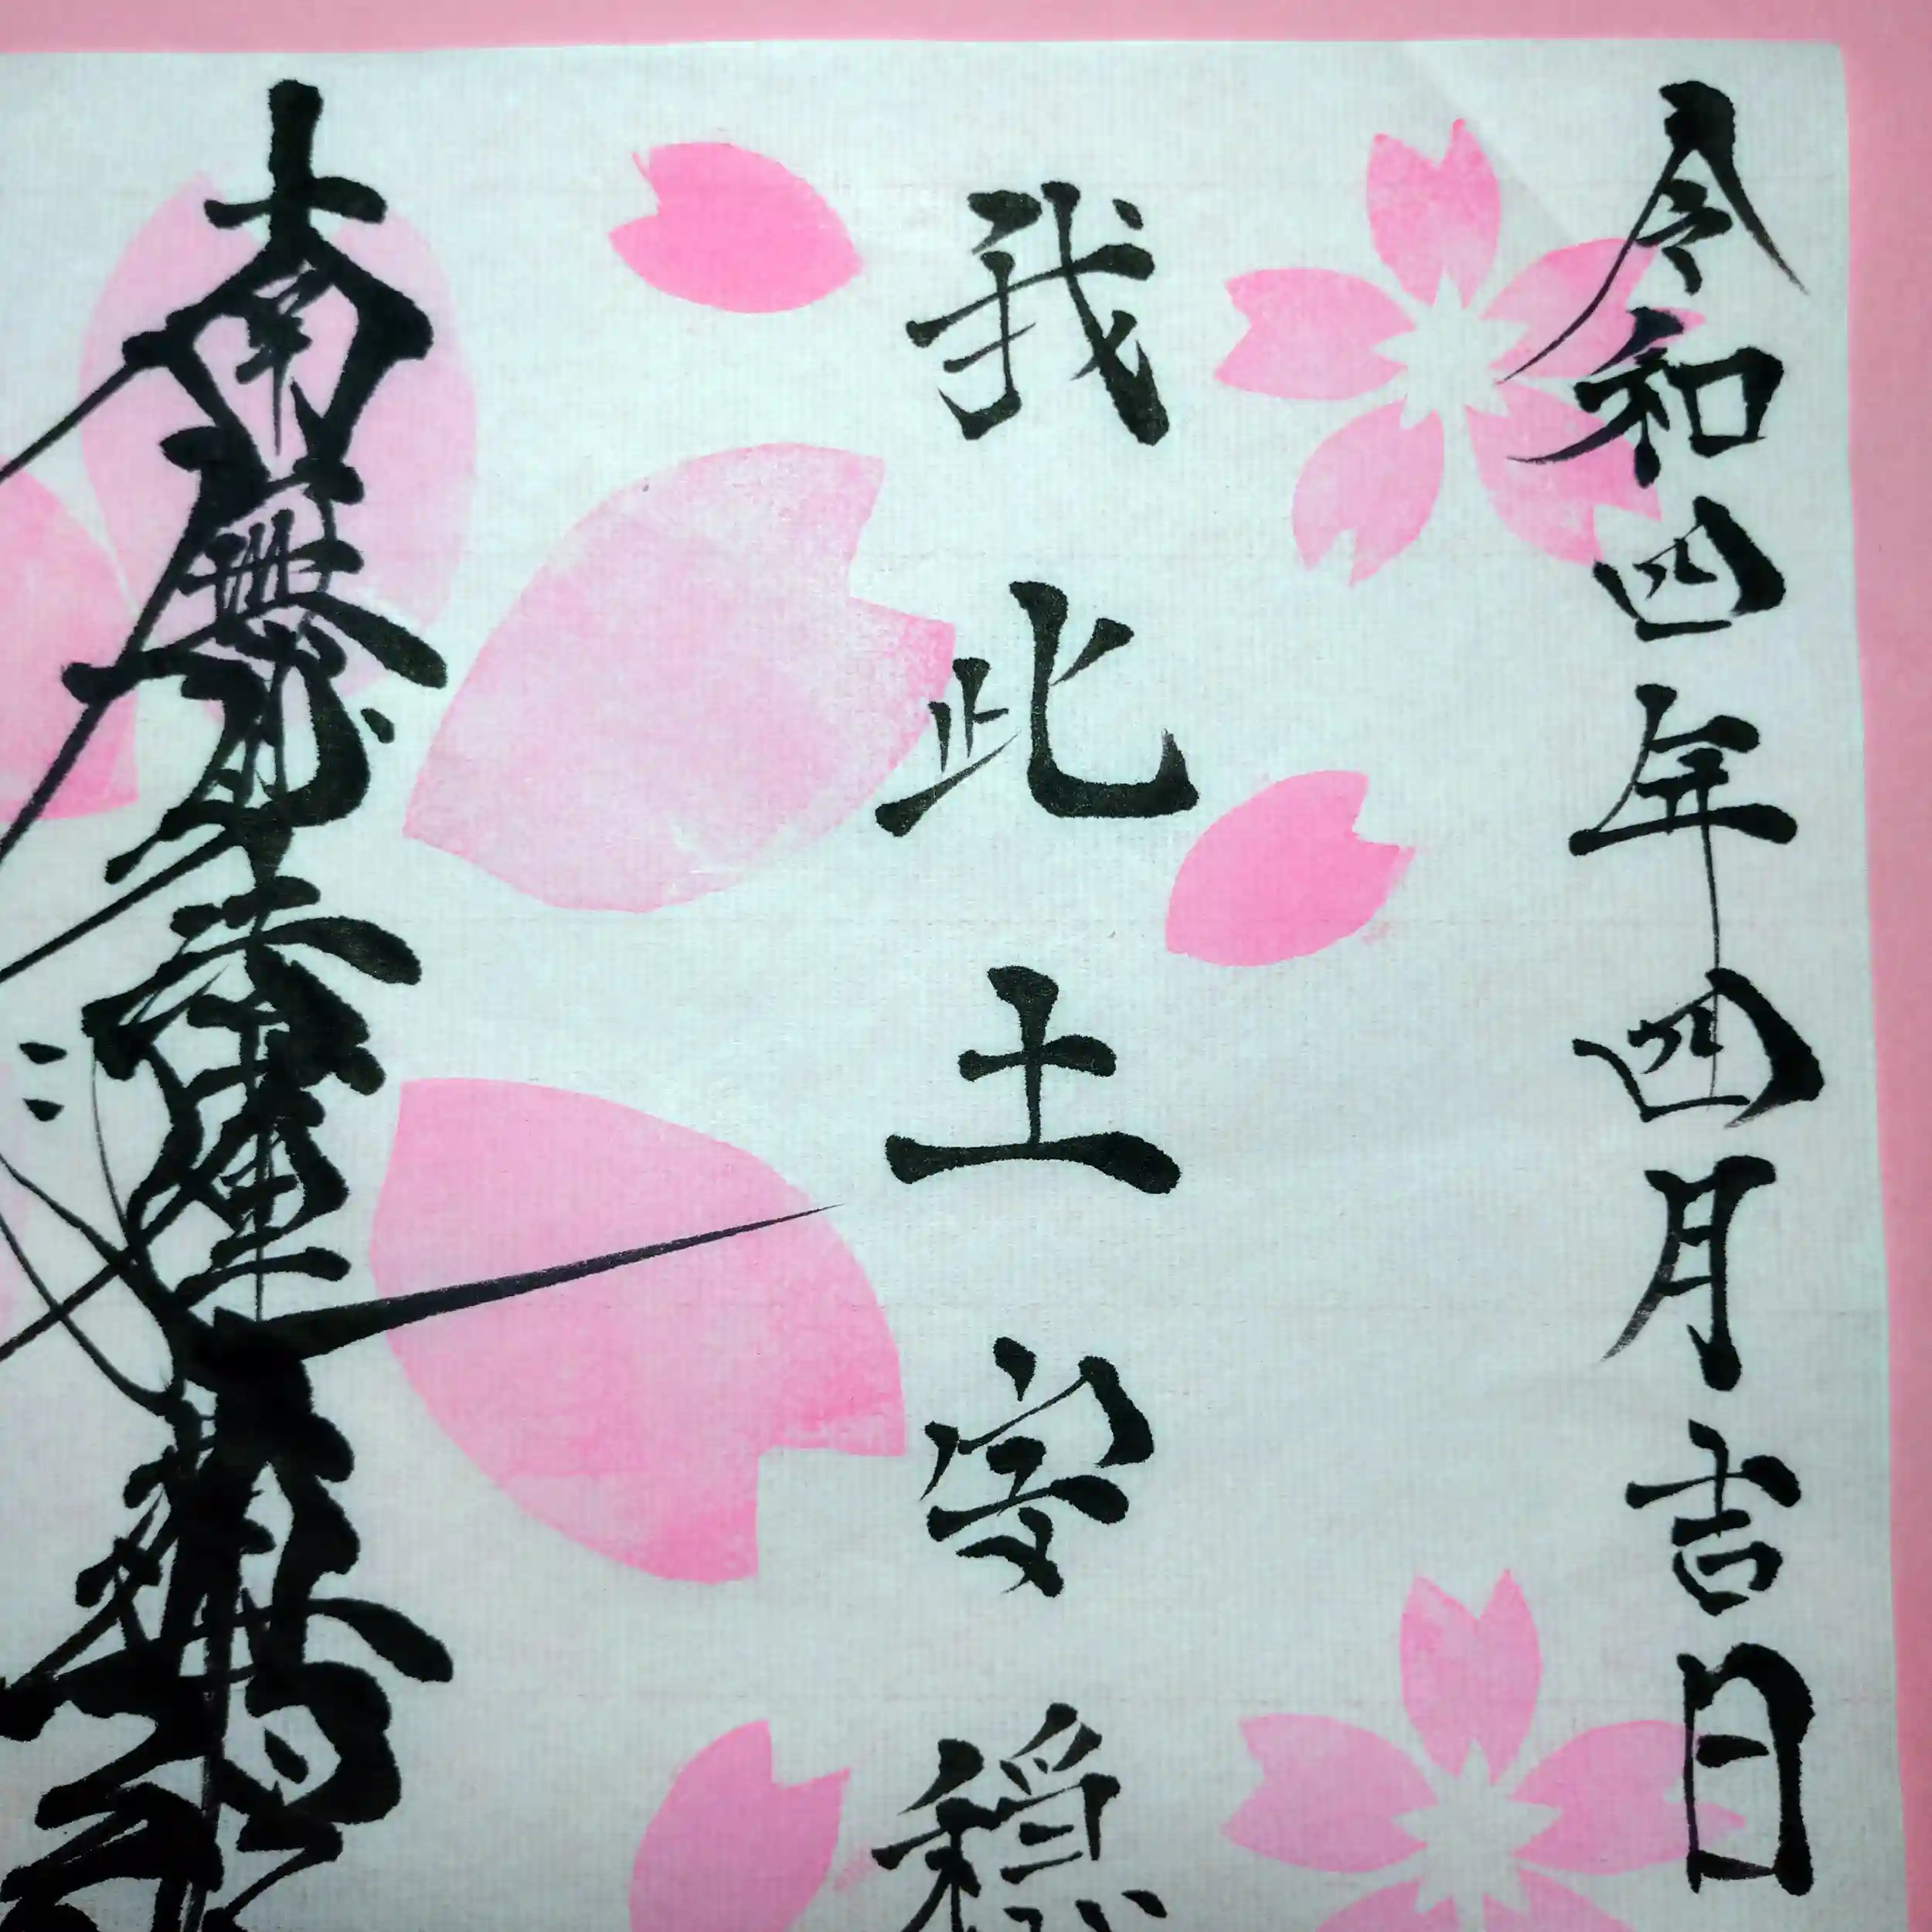 令和四年四月吉日
我此土安穏
南無妙法蓮華